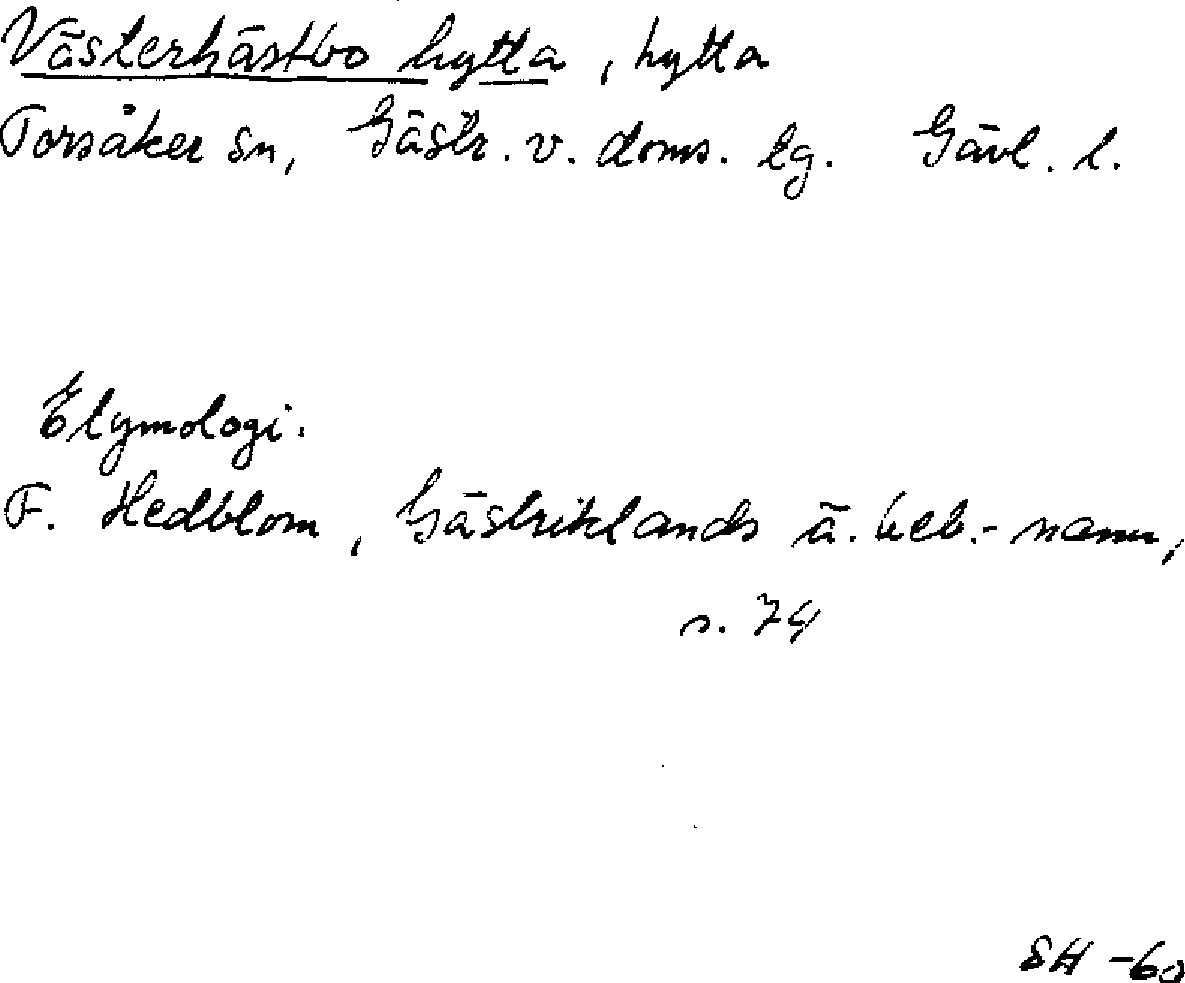 Västerhästbo hytta, hytta
Torsåker sn, Gästr. v. doms. lg. Gävl. l.
Etymologi.
F. Hedblom, Gästriklands ä. beb.-namn,
s. 74
SH -60